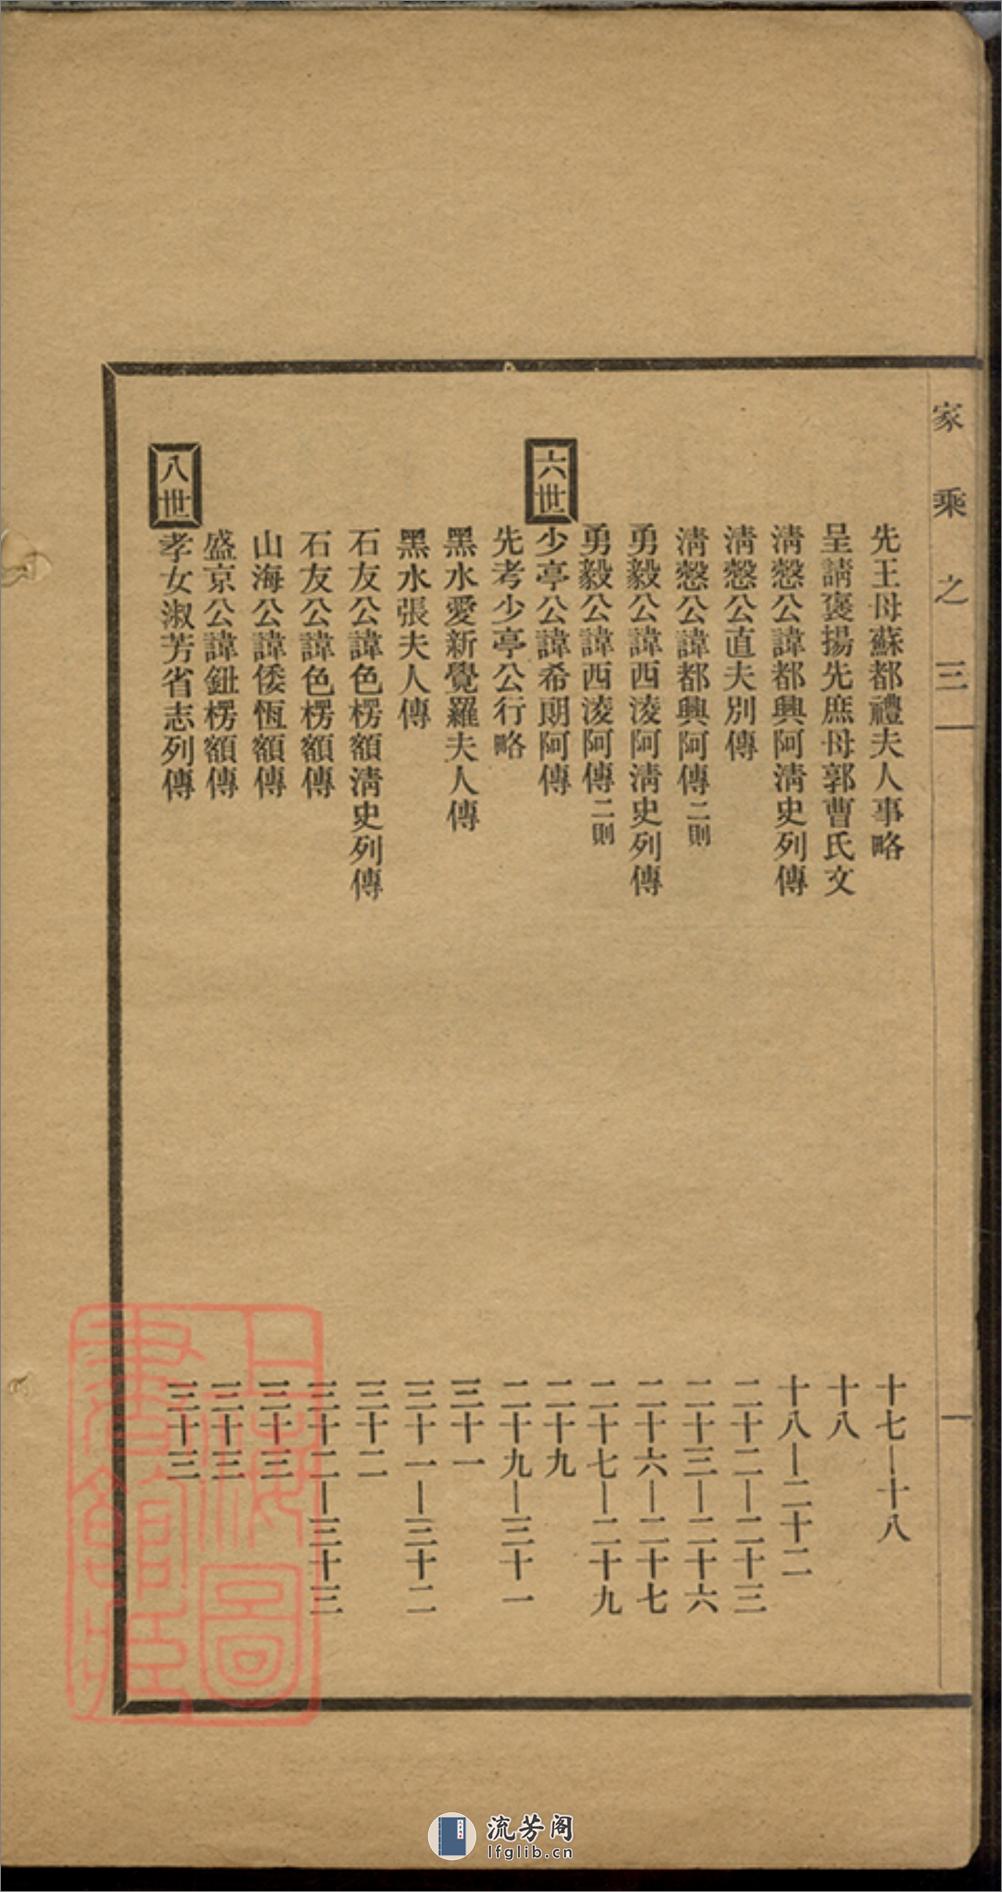 家乘之三 一
先王母蘇都禮夫人事略 十七—十八
呈請褒揚先庶母郭曹氏文 十八
清慤公諱都興阿清史列傳 十八—二十二
清慤公直夫別傳 二十二—二十三
清慤公諱都興阿傳二則 二十三—二十六
勇毅公諱西淩阿清史列傳 二十六—二十七
勇毅公諱西淩阿傳二則 二十七—二十九
六世 少亭公諱希朗阿傳 二十九
先考少亭公行略 二十九—三十一
黑水愛新覺羅夫人傳 三十一
黑水張夫人傳 三十一—三十二
石友公諱色楞額清史列傳 三十二
石友公諱色楞額傳 三十二—三十三
山海公諱倭恆額傳 三十三
盛京公諱鈕楞額傳 三十三
八世 孝女淑芳省志列傳 三十三
上海圖書館藏
流芳阁
lfglib.cn